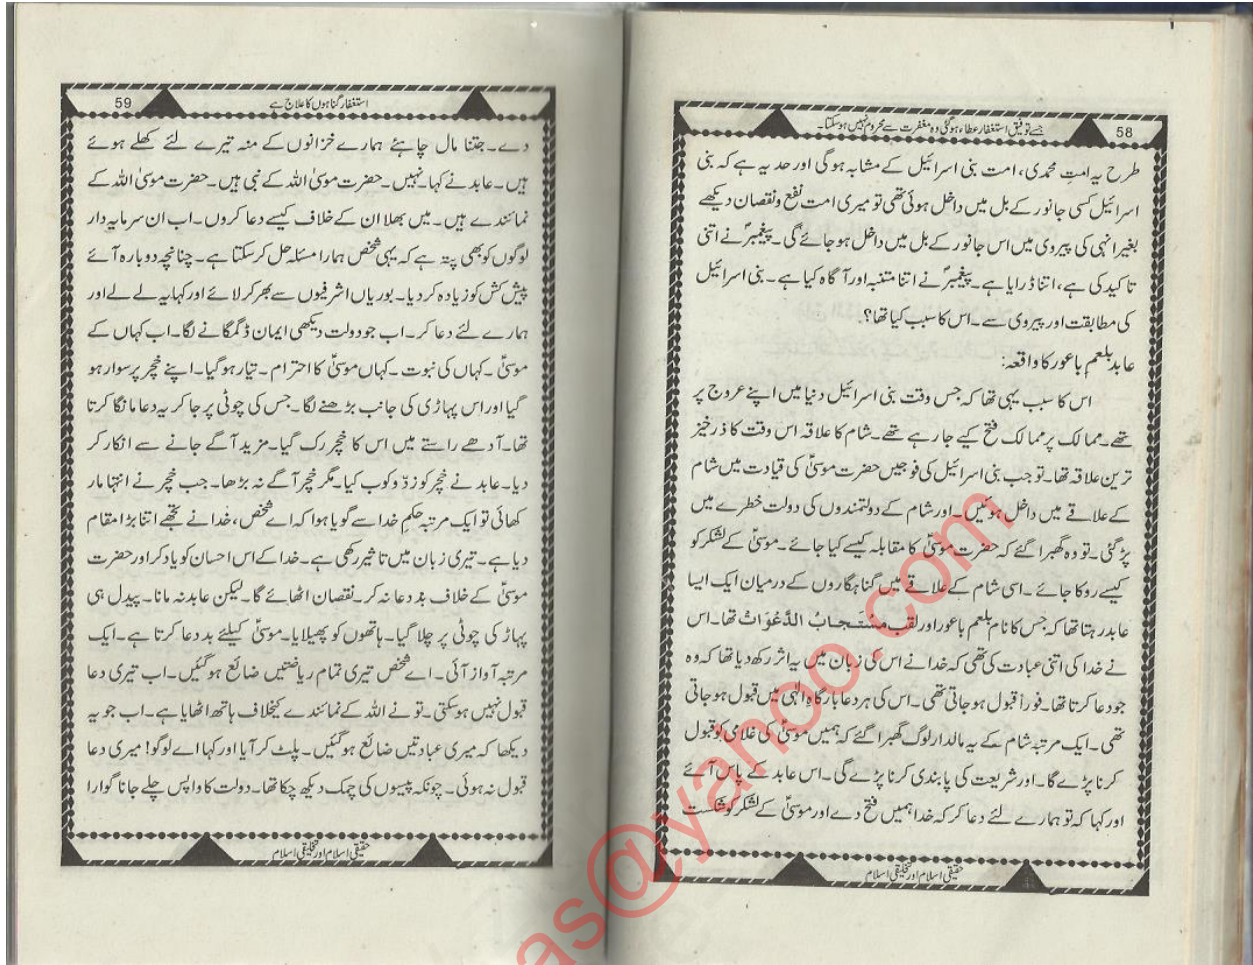 58
جسے توفیق استغفار عطاء ہوگئی وہ مغفرت سے محروم نہیں ہوسکتا۔
طرح یہ امتِ محمدی، امت بنی اسرائیل کے مشابہ ہوگی اور حد یہ ہے کہ بنی
اسرائیل کسی جانور کے بل میں داخل ہوئی تھی تو میری امت نفع و نقصان دیکھے
بغیر انہی کی پیروی میں اس جانور کے بل میں داخل ہو جائے گی۔ پیغمبرؐ نے اتنی
تاکید کی ہے، اتنا ڈرایا ہے۔ پیغمبرؐ نے اتنا متنبہ اور آگاہ کیا ہے۔ بنی اسرائیل
کی مطابقت اور پیروی سے۔ اس کا سبب کیا تھا؟۔
عابد بلعم باعور کا واقعہ:
اس کا سبب یہی تھا کہ جس وقت بنی اسرائیل دنیا میں اپنے عروج پر
تھے۔ ممالک پر ممالک فتح کیے جا رہے تھے۔ شام کا علاقہ اس وقت کا ذرخیز
ترین علاقہ تھا۔ تو جب بنی اسرائیل کی فوجیں حضرت موسیٰؑ کی قیادت میں شام
کے علاقے میں داخل ہوئیں۔ اور شام کے دولتمندوں کی دولت خطرے میں
پڑ گئی۔ تو وہ گھبرا گئے کہ حضرت موسیٰؑ کا مقابلہ کیسے کیا جائے۔ موسیٰؑ کے لشکر کو
کیسے روکا جائے۔ اسی شام کے علاقے میں گناہگاروں کے درمیان ایک ایسا
عابد رہتا تھا کہ جس کا نام بلعم باعور اور لقب مُسْتَجَابُ الدَّعْوَاتْ تھا۔ اس
نے خدا کی اتنی عبادت کی تھی کہ خدا نے اس کی زبان میں یہ اثر رکھ دیا تھا کہ وہ
جو دعا کرتا تھا۔ فوراً قبول ہو جاتی تھی۔ اس کی ہر دعا بارگاہِ الٰہی میں قبول ہو جاتی
تھی۔ ایک مرتبہ شام کے یہ مالدار لوگ گھبرا گئے کہ ہمیں موسیٰؑ کی غلامی کو قبول
کرنا پڑے گا۔ اور شریعت کی پابندی کرنا پڑے گی۔ اس عابد کے پاس آئے
اور کہا کہ تو ہمارے لئے دعا کر کہ خدا ہمیں فتح دے اور موسیٰؑ کے لشکر کو شکست
حقیقی اسلام اور تخلیقی اسلام
59
استغفار گناہوں کا علاج ہے
دے۔ جتنا مال چاہئے ہمارے خزانوں کے منہ تیرے لئے کھلے ہوئے
ہیں۔ عابد نے کہا۔ نہیں۔ حضرت موسیٰ اللہ کے نبی ہیں۔ حضرت موسیٰ اللہ کے
نمائندے ہیں۔ میں بھلا ان کے خلاف کیسے دعا کروں۔ اب ان سرمایہ دار
لوگوں کو بھی پتہ ہے کہ یہی شخص ہمارا مسئلہ حل کر سکتا ہے۔ چنانچہ دوبارہ آئے
پیش کش کو زیادہ کر دیا۔ بوریاں اشرفیوں سے بھر کر لائے اور کہا یہ لے لے اور
ہمارے لئے دعا کر۔ اب جو دولت دیکھی ایمان ڈگمگانے لگا۔ اب کہاں کے
موسیٰؑ۔ کہاں کی نبوت۔ کہاں موسیٰؑ کا احترام۔ تیار ہو گیا۔ اپنے خچر پر سوار ہو
گیا اور اس پہاڑی کی جانب بڑھنے لگا۔ جس کی چوٹی پر جا کر یہ دعا مانگا کرتا
تھا۔ آدھے راستے میں اس کا خچر رک گیا۔ مزید آگے جانے سے انکار کر
دیا۔ عابد نے خچر کو زدّ و کوب کیا۔ مگر خچر آگے نہ بڑھا۔ جب خچر نے انتہا مار
کھائی تو ایک مرتبہ حکمِ خدا سے گویا ہوا کہ اے شخص، خدا نے تجھے اتنا بڑا مقام
دیا ہے۔ تیری زبان میں تاثیر رکھی ہے۔ خدا کے اس احسان کو یاد کر اور حضرت
موسیٰؑ کے خلاف بد دعا نہ کر۔ نقصان اٹھائے گا۔ لیکن عابد نہ مانا۔ پیدل ہی
پہاڑ کی چوٹی پر چلا گیا۔ ہاتھوں کو پھیلایا۔ موسیٰؑ کیلئے بد دعا کرتا ہے۔ ایک
مرتبہ آواز آئی۔ اے شخص تیری تمام ریاضتیں ضائع ہو گئیں۔ اب تیری دعا
قبول نہیں ہو سکتی۔ تو نے اللہ کے نمائندے کیخلاف ہاتھ اٹھایا ہے۔ اب جو یہ
دیکھا کہ میری عبادتیں ضائع ہو گئیں۔ پلٹ کر آیا اور کہا اے لوگو! میری دعا
قبول نہ ہوئی۔ چونکہ پیسوں کی چمک دیکھ چکا تھا۔ دولت کا واپس چلے جانا گوارا
حقیقی اسلام اور تخلیقی اسلام
as@yahoo.com